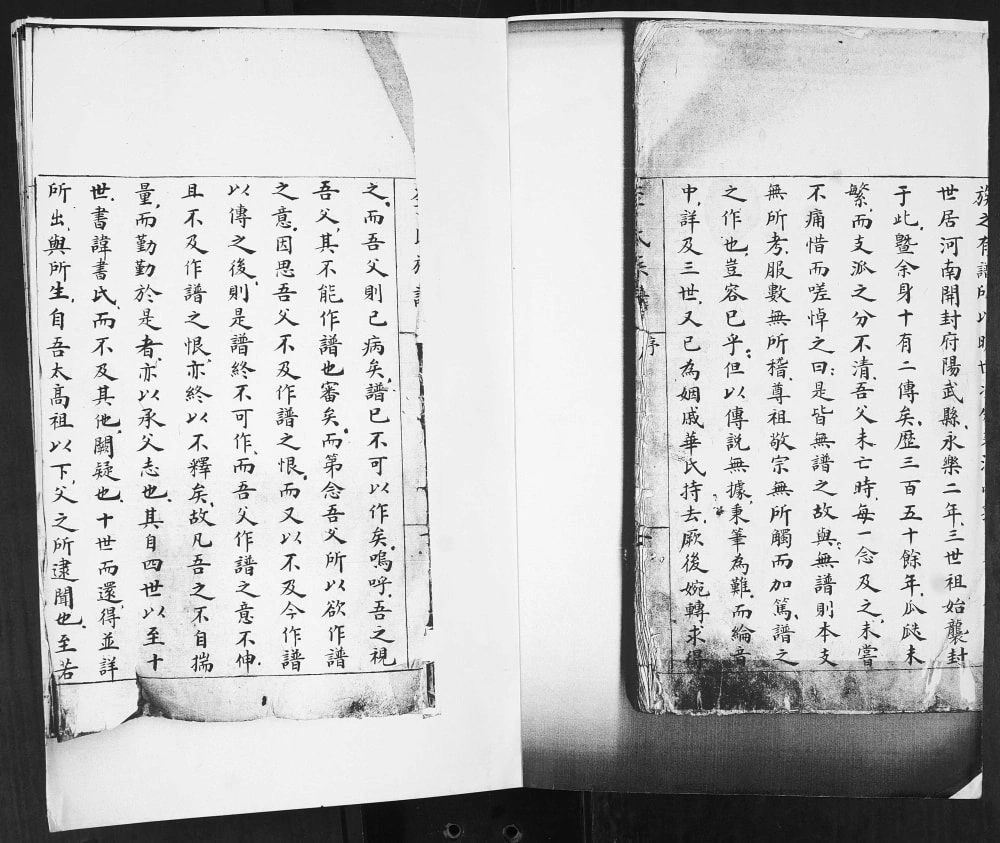 族之有譜所以
世居河南開封府陽武縣永樂二年三世祖始襲封
于此暨余身十有二傳矣歷三百五十餘年瓜瓞未
繁而支派之分不清吾父未亡時每一念及之未嘗
不痛惜而嗟悼之曰是皆無譜之故與無譜則本支
無所考服數無所稽尊祖敬宗無所觸而加篤譜之
之作也豈容已乎但以傳説無據秉筆為難而綸音
中詳及三世又已為姻戚華氏持去厥後婉轉求得
氏族譜
序
之而吾父則已病矣譜已不可以作矣嗚呼吾之視
吾父其不能作譜也審矣而第念吾父所以欲作譜
之意因思吾父不及作譜之恨而又以不及今作譜
以傳之後則是譜終不可作而吾父作譜之意不伸
且不及作譜之恨亦終以不釋矣故凡吾之不自揣
量而勤勤於是者亦以承父志也其自四世以至十
世書諱書氏而不及其他闕疑也十世而還得並詳
所出與所生自吾太高祖以下父之所逮聞也至若